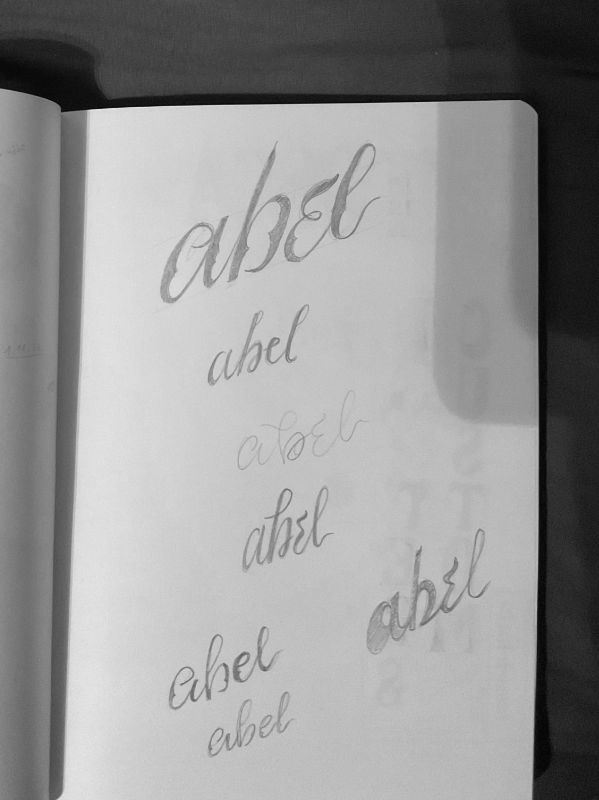 abel
abel
abel
abel
abel
abel
abel